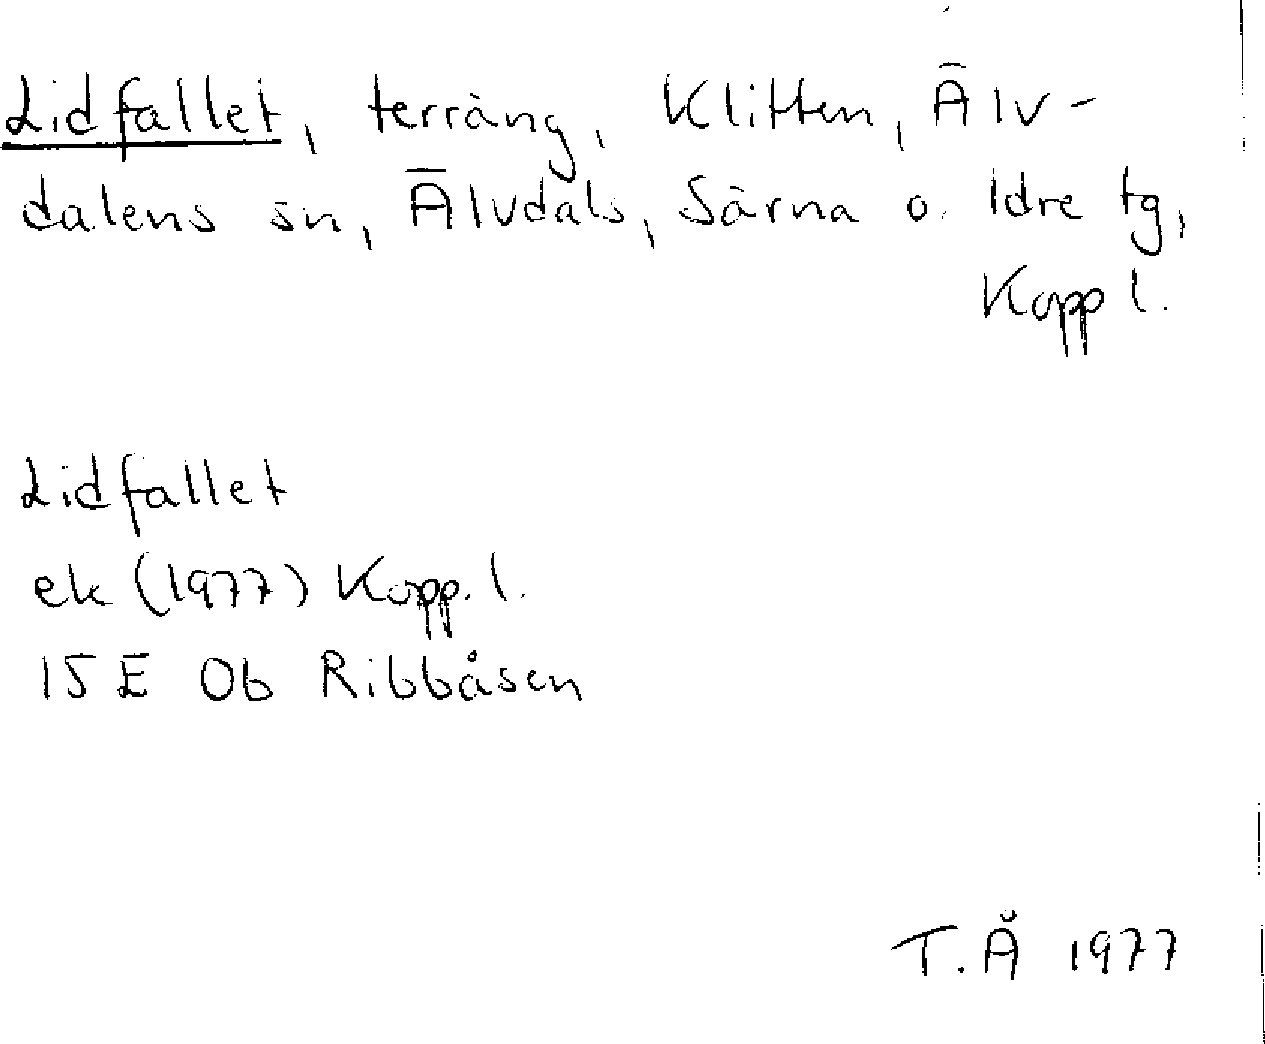 Lidfallet, terräng, Klitten, Älv-
dalens sn, Älvdals, Särna o. Idre tg,
Kopp l.
Lidfallet
ek (1977) Kopp. l.
15 E 0b Ribbåsen
T.Å 1977